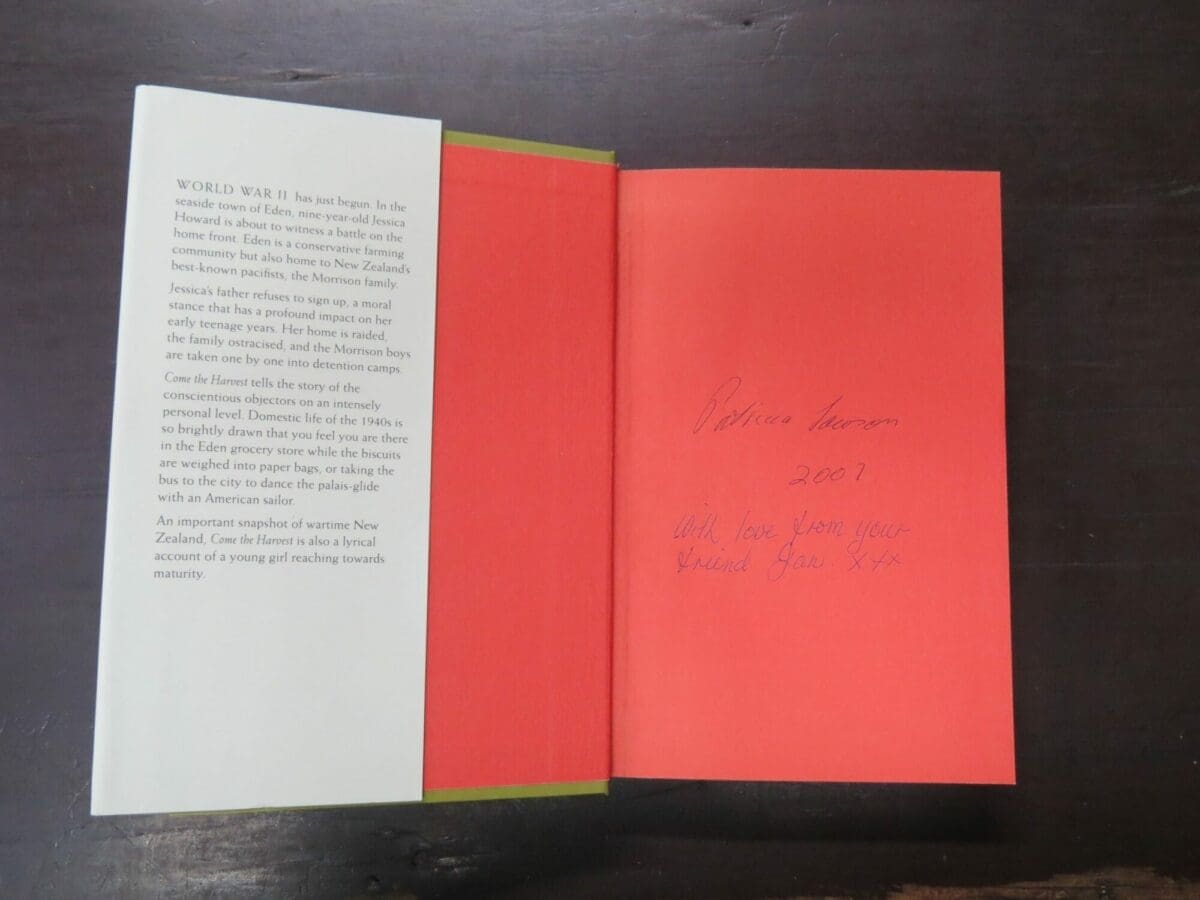 WORLD WAR II has just begun. In the
seaside town of Eden, nine-year-old Jessica
Howard is about to witness a battle on the
home front. Eden is a conservative farming
community but also home to New Zealand's
best-known pacifists, the Morrison family.
Jessica's father refuses to sign up, a moral
stance that has a profound impact on her
early teenage years. Her home is raided,
the family ostracised, and the Morrison boys
are taken one by one into detention camps.
Come the Harvest tells the story of the
conscientious objectors on an intensely
personal level. Domestic life of the 1940s is
so brightly drawn that you feel you are there
in the Eden grocery store while the biscuits
are weighed into paper bags, or taking the
bus to the city to dance the palais-glide
with an American sailor.
An important snapshot of wartime New
Zealand, Come the Harvest is also a lyrical
account of a young girl reaching towards
maturity.
Patricia
2007
With love from your
friend Jan. xxx